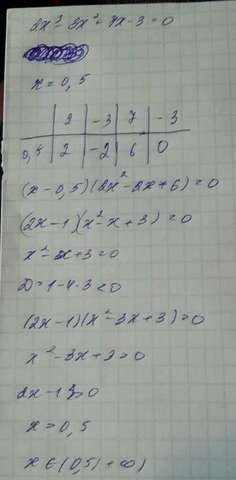 2x³-3x²+7x-3=0
x=0,5
2 | -3 | 7 | -3
0,5 | 2 | -2 | 6 | 0
(x-0,5)(2x²-2x+6)=0
(2x-1)(x²-x+3)=0
x²-x+3=0
D=1-4·3<0
(2x-1)(x²-3x+3)=0
x²-3x+3>0
2x-1>0
x=0,5
x∈(0,5)+∞)